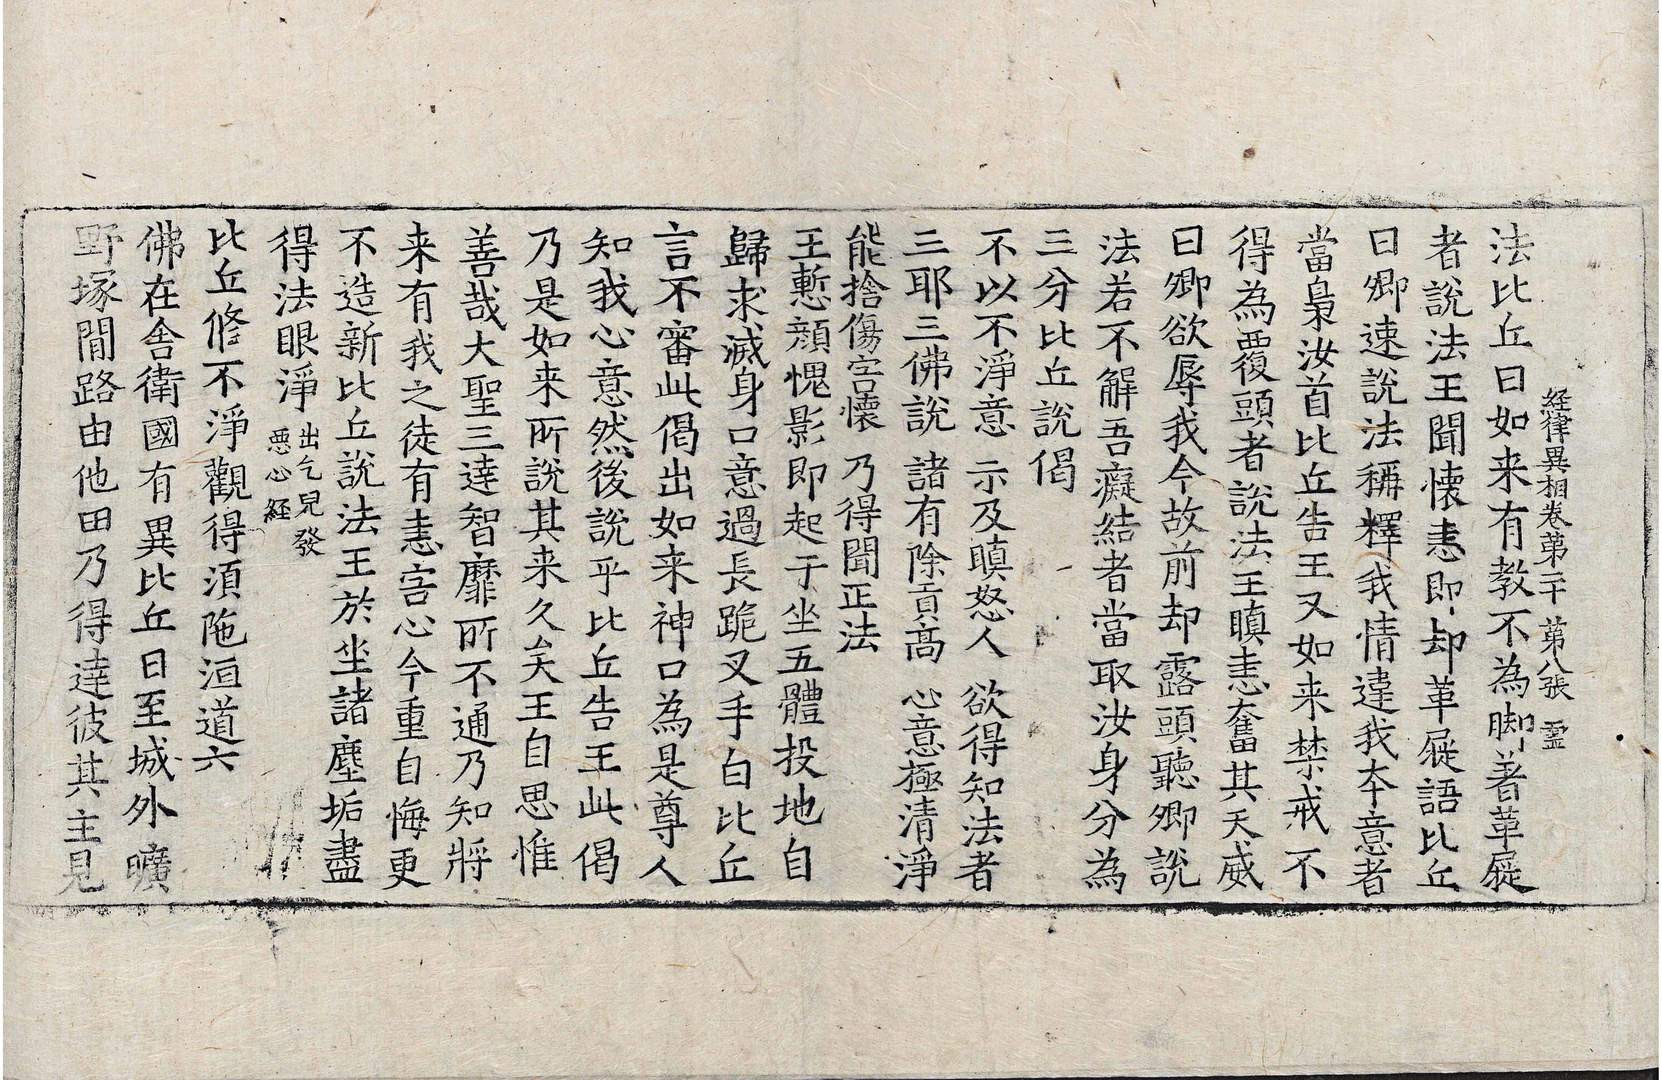 経律異相卷第二十 第八張 霊
法比丘曰如来有教不為脚著革屣
者說法王聞懷恚即却革屣語比丘
曰卿速說法稱釋我情違我本意者
當梟汝首比丘告王又如来禁戒不
得為覆頭者說法王瞋恚奮其天威
曰卿欲辱我今故前却露頭聽卿說
法若不解吾癡結者當取汝身分為
三分比丘說偈
不以不淨意 示及瞋怒人 欲得知法者
三耶三佛說 諸有除貢高 心意極清淨
能捨傷害懷 乃得聞正法
王慙顏愧影即起于坐五體投地自
歸求滅身口意過長跪叉手白比丘
言不審此偈出如来神口為是尊人
知我心意然後說乎比丘告王此偈
乃是如来所說其来久矣王自思惟
善哉大聖三達智靡所不通乃知將
来有我之徒有恚害心今重自悔更
不造新比丘說法王於坐諸塵垢盡
得法眼淨出乞兒發
惡心経
比丘修不淨觀得須陁洹道六
佛在舍衛國有異比丘日至城外曠
野塚間路由他田乃得達彼其主見